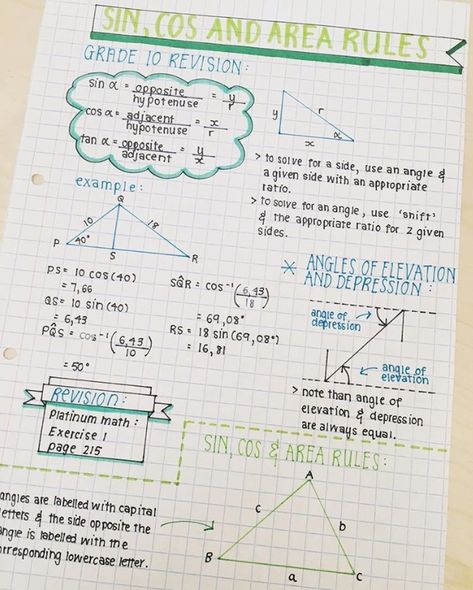 SIN, COS AND AREA RULES
GRADE 10 REVISION:
sin α = opposite/hypotenuse = y/r
cos α = adjacent/hypotenuse = x/r
tan α = opposite/adjacent = y/x
y
r
x
α
> to solve for a side, use an angle &
a given side with an appropriate
ratio.
> to solve for an angle, use 'shift'
& the appropriate ratio for 2 given
sides.
example:
Q
10
18
P
40°
S
R
PS = 10 cos(40)
= 7,66
QS = 10 sin(40)
= 6,43
PQ̂S = cos⁻¹(6,43/10)
= 50°
SQ̂R = cos⁻¹(6,43/18)
= 69,08°
RS = 18 sin(69,08°)
= 16,81
* ANGLES OF ELEVATION
AND DEPRESSION:
angle of
depression
angle of
elevation
> note than angle of
elevation & depression
are always equal.
REVISION:
Platinum Math:
Exercise 1
page 215
SIN, COS & AREA RULES:
angles are labelled with capital
letters & the side opposite the
angle is labelled with the
corresponding lowercase letter.
A
c
b
B
a
C